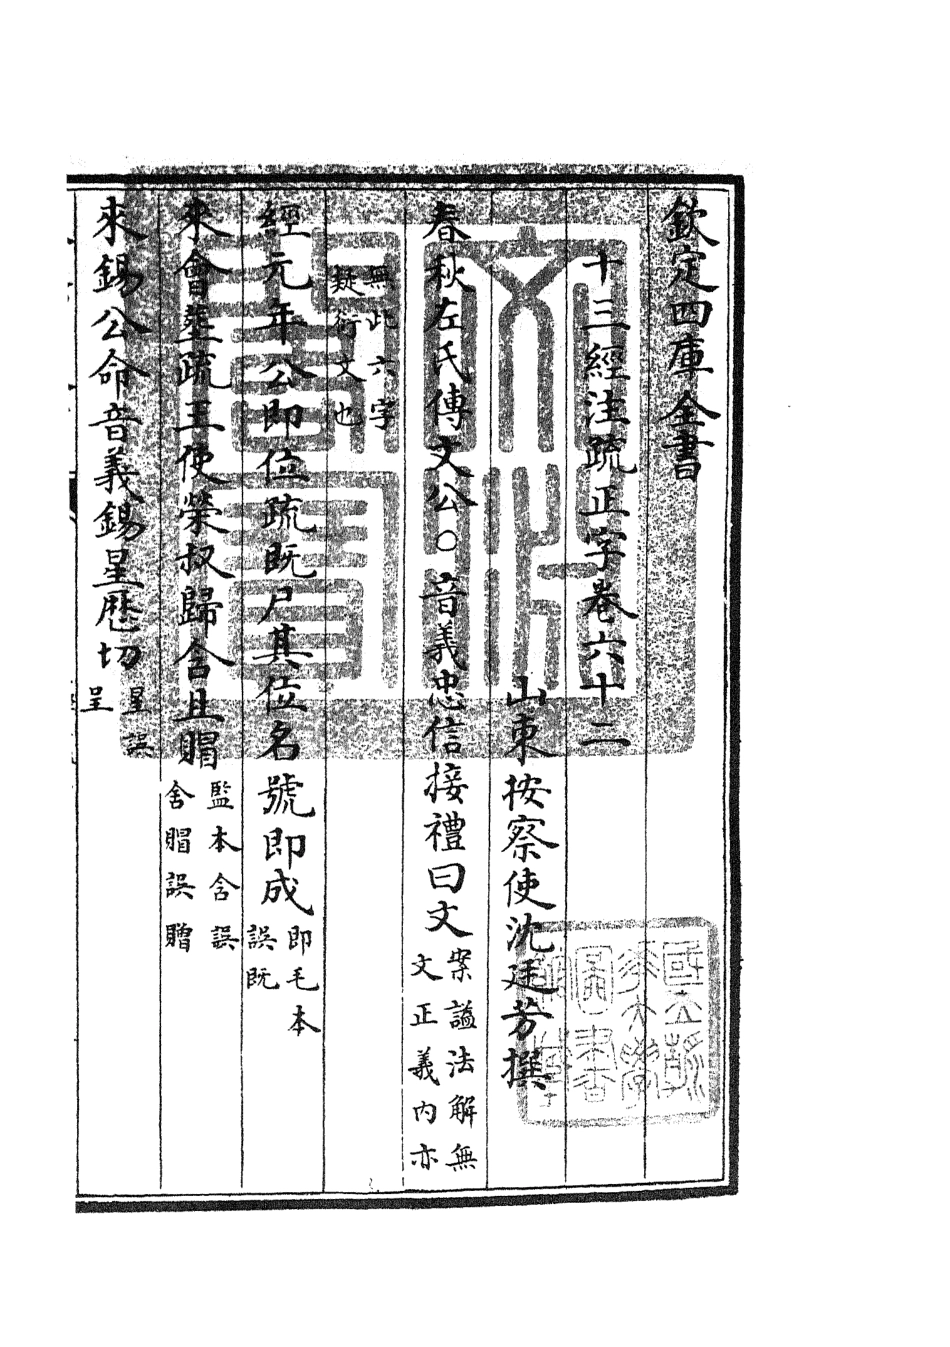 欽定四庫全書
十三經注疏正字卷六十二
山東按察使沈廷芳撰
春秋左氏傳文公○音義忠信接禮曰文案謚法解無文正義内亦
無此六字疑衍文也
經元年公即位疏既尸其位名號即成即毛本誤既
來會塟疏王使榮叔歸含且賵監本含誤舍賵誤贈
來錫公命音義錫星歴切星誤呈